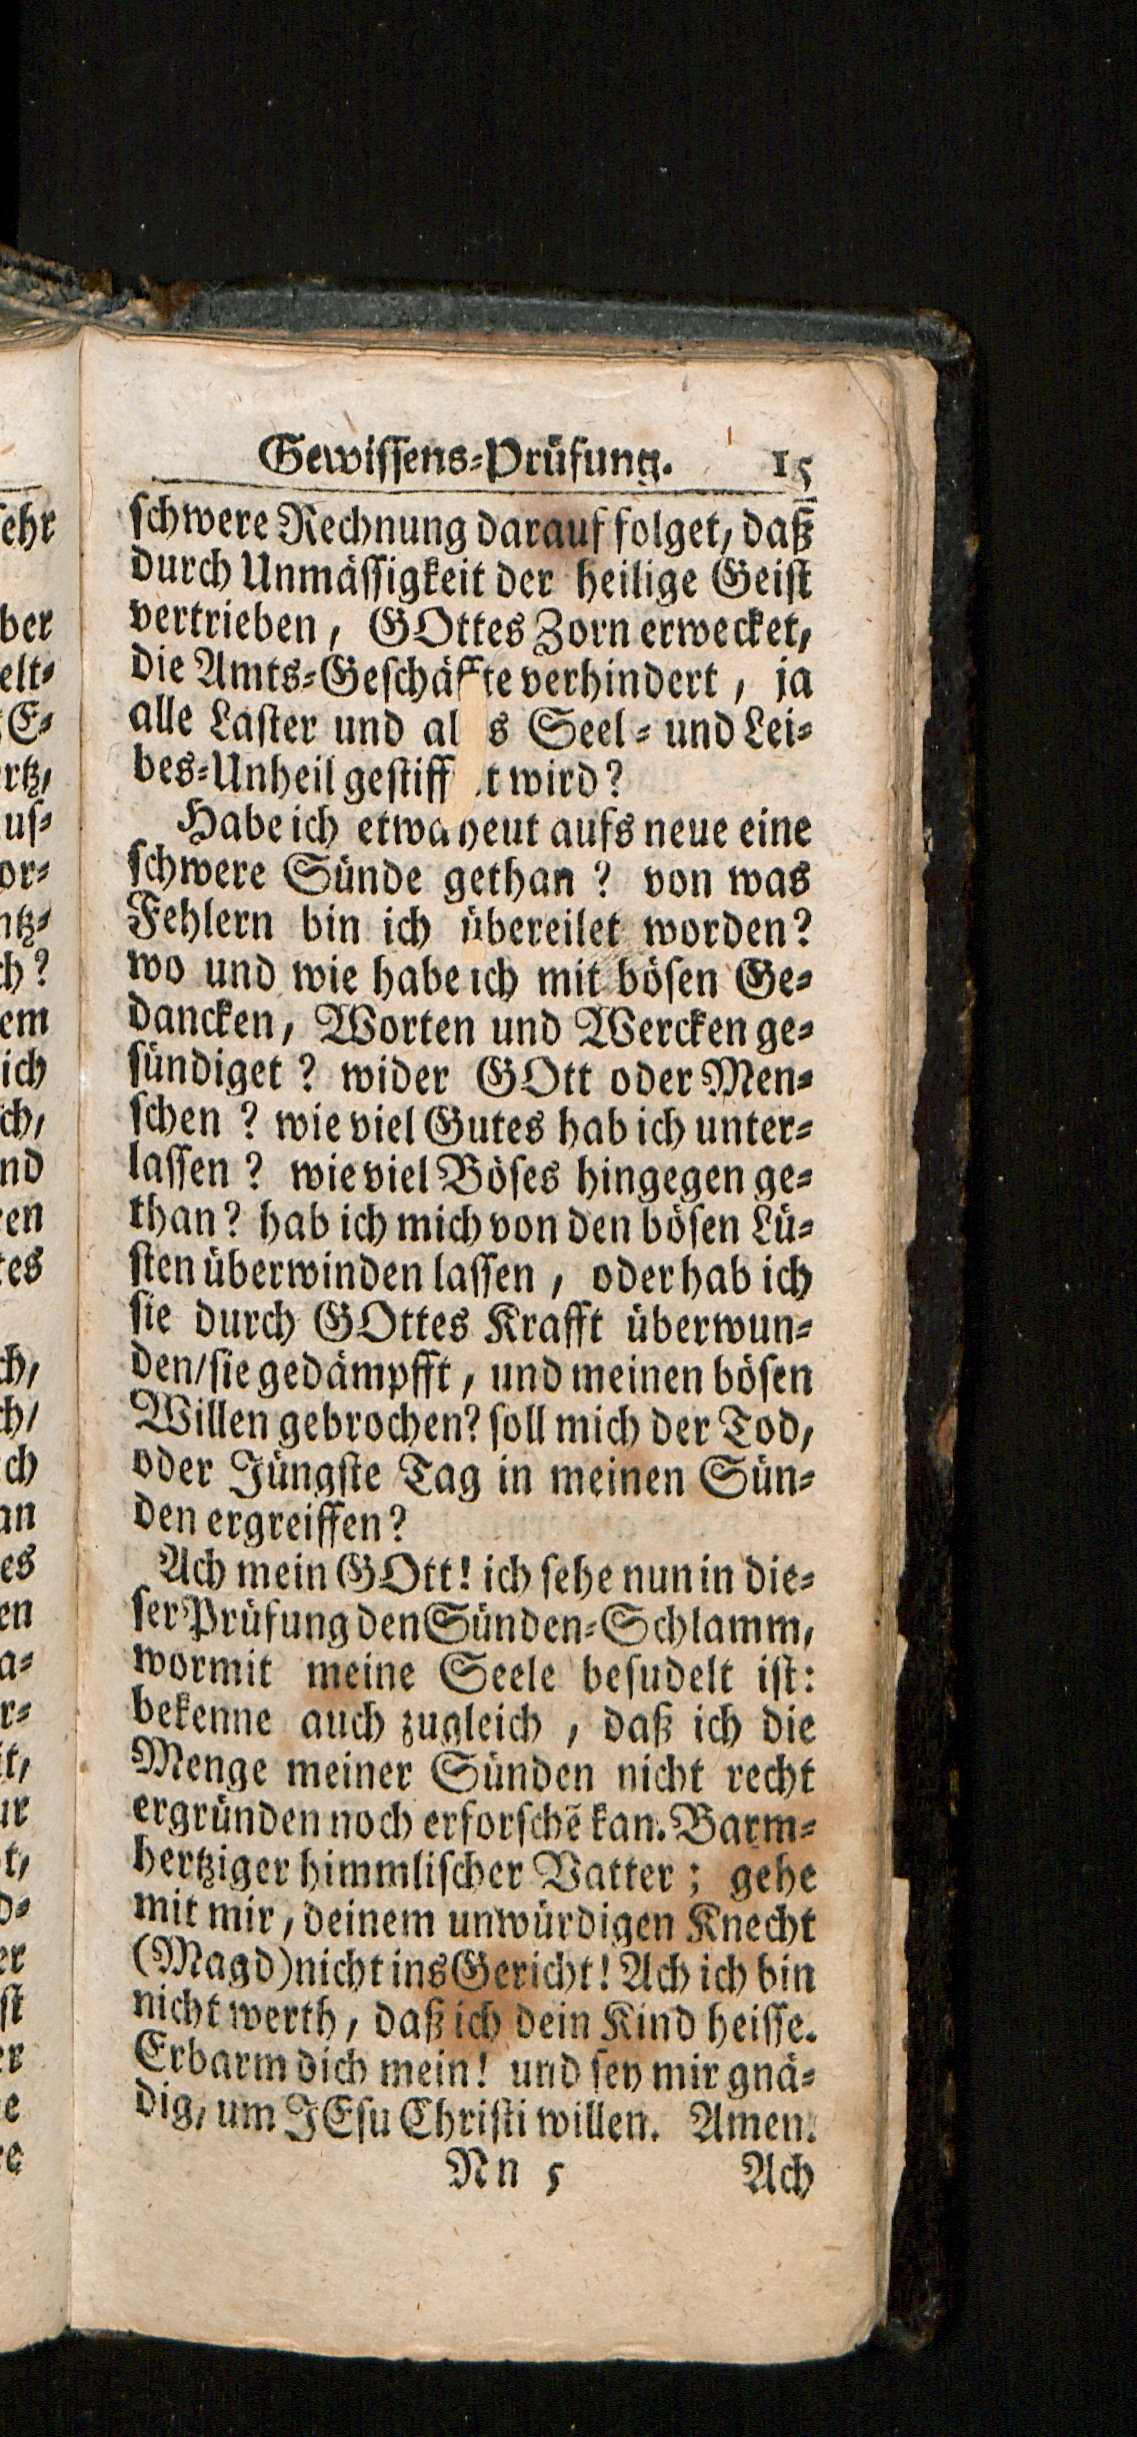 Gewissens-Prüfung. 15
schwere Rechnung darauf folget, daß
durch Unmässigkeit der heilige Geist
vertrieben, GOttes Zorn erwecket,
die Amts-Geschäffte verhindert, ja
alle Laster und al s Seel- und Lei-
bes-Unheil gestiff t wird?
Habe ich etwa heut aufs neue eine
schwere Sünde gethan? von was
Fehlern bin ich übereilet worden?
wo und wie habe ich mit bösen Ge-
dancken, Worten und Wercken ge-
sündiget? wider GOtt oder Men-
schen? wie viel Gutes hab ich unter-
lassen? wie viel Böses hingegen ge-
than? hab ich mich von den bösen Lü-
sten überwinden lassen, oder hab ich
sie durch GOttes Krafft überwun-
den/ sie gedämpfft, und meinen bösen
Willen gebrochen? soll mich der Tod,
oder Jüngste Tag in meinen Sün-
den ergreiffen?
Ach mein GOtt! ich sehe nun in die-
ser Prüfung den Sünden-Schlamm,
wormit meine Seele besudelt ist:
bekenne auch zugleich, daß ich die
Menge meiner Sünden nicht recht
ergründen noch erforschẽ kan. Barm-
hertziger himmlischer Vatter; gehe
mit mir, deinem unwürdigen Knecht
(Magd) nicht ins Gericht! Ach ich bin
nicht werth, daß ich dein Kind heisse.
Erbarm dich mein! und sey mir gnä-
dig, um JEsu Christi willen. Amen.
Nn 5 Ach